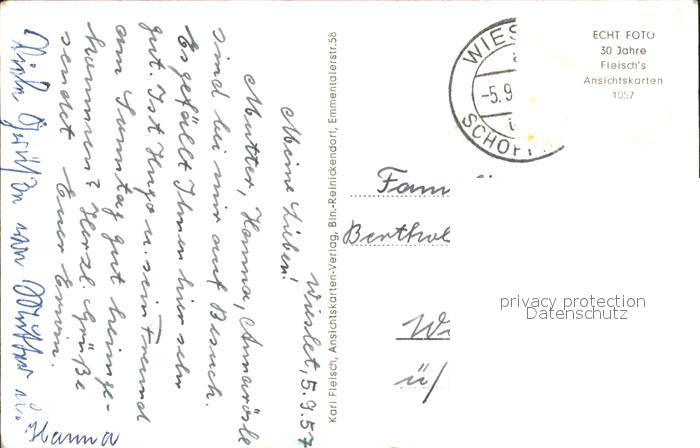 Wieslet, 5.9.57
Meine Lieben!
Mutter, Hanna, Annarösle
sind bei mir auf Besuch.
Es gefällt Ihnen hier sehr
gut. Ist Hugo u. sein Freund
am Sonntag gut heimge-
kommen? Herzl. Grüße
sendet Euer Erwin.
Viele Grüße von Mutter u.
Hanna
Karl Fleisch, Ansichtskarten-Verlag, Bln.-Reinickendorf, Emmentalerstr. 58
WIES
-5.9
SCHOPF
ECHT FOTO
30 Jahre
Fleisch's
Ansichtskarten
1057
Fam
Berthol
Wi
ü/
privacy protection
Datenschutz